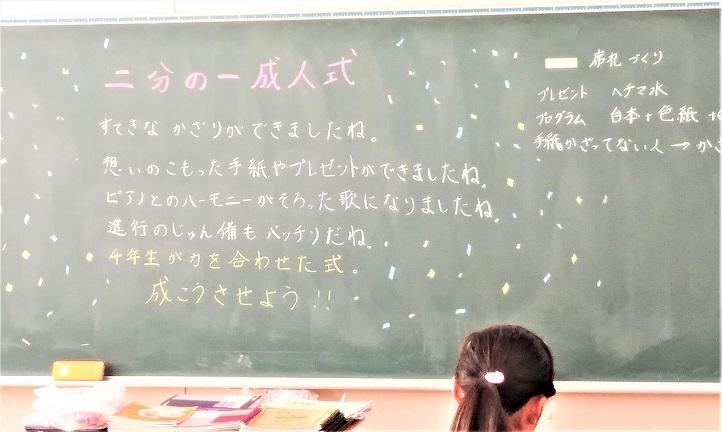 二分の一成人式
すてきな かざりができましたね。
想いのこもった手紙やプレゼントができましたね。
ピアノとのハーモニーがそろった歌になりましたね。
進行のじゅん備もバッチリだね。
4年生が力を合わせた式。
成こうさせよう!!
席札づくり
プレゼント ヘチマ水
プログラム 台本+色紙
手紙かざってない人→かざ